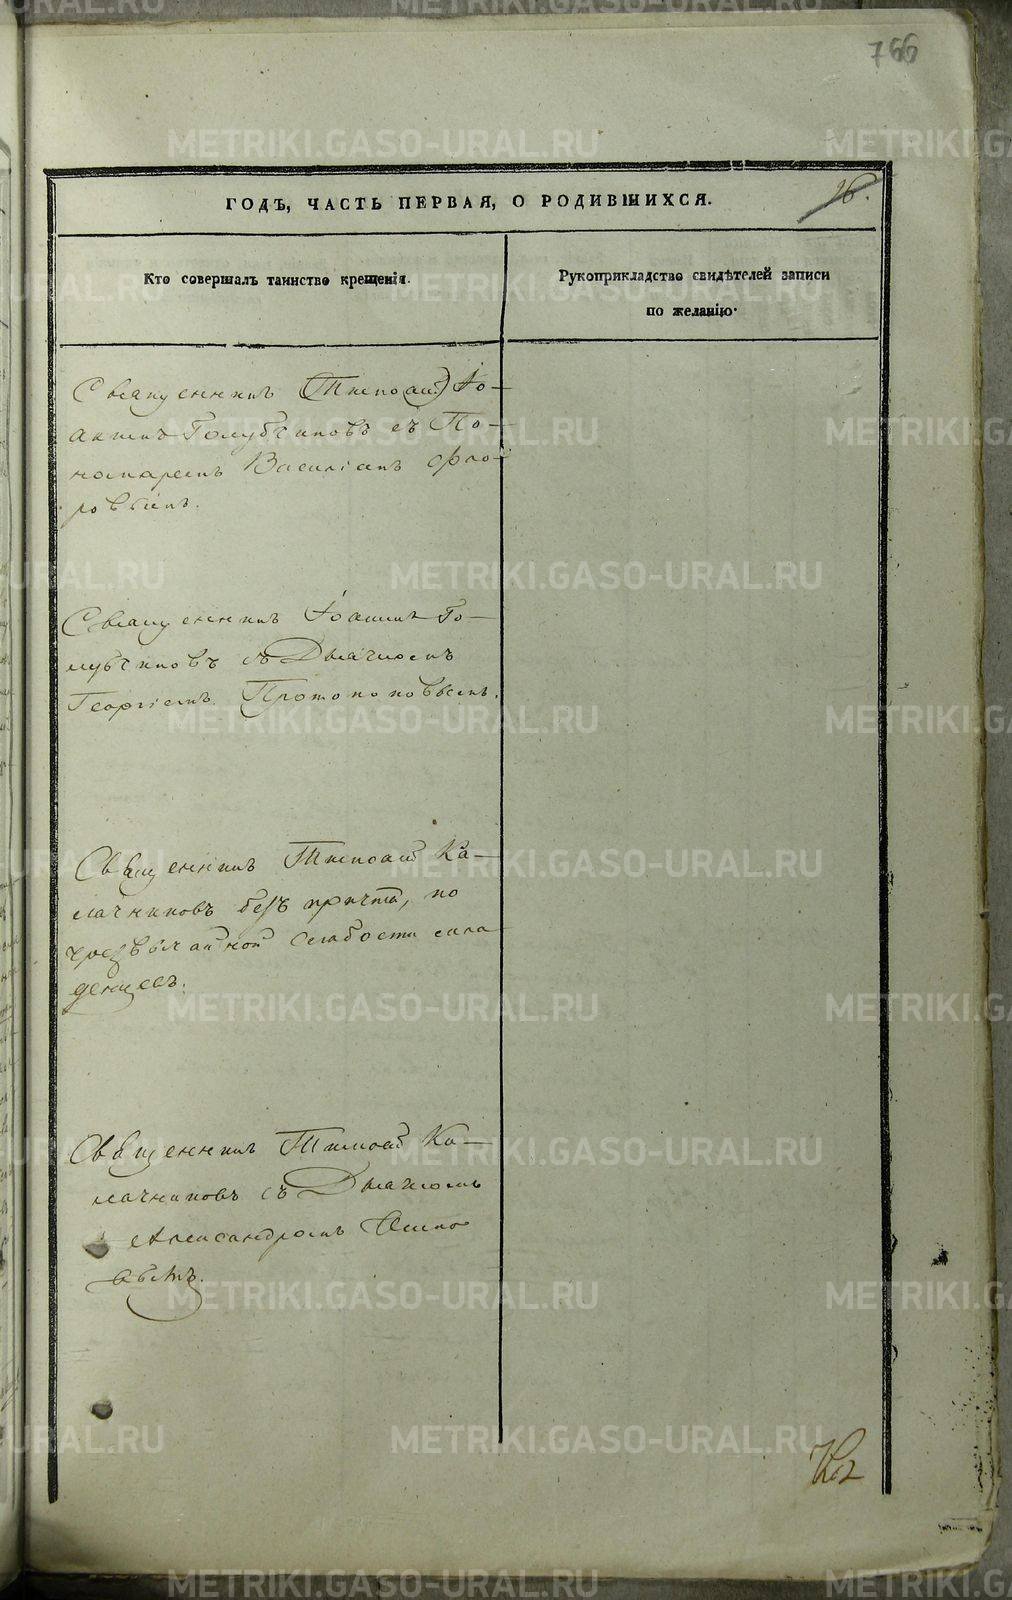 766
16.
ГОДЪ, ЧАСТЬ ПЕРВАЯ, О РОДИВШИХСЯ.
Кто совершалъ таинство крещенія.
Рукоприкладство свидѣтелей записи
по желанію.
Священникъ (Тимофей) Іо-
аннъ Голубчиковъ съ По-
номаремъ Василіемъ Фло-
ровымъ.
Священникъ Іоаннъ Го-
лубчиковъ съ Дьячкомъ
Георгіемъ Протопоповымъ.
Священникъ Тимофей Ка-
лачниковъ безъ причта, по
чрезвычайной слабости мла-
денцевъ.
Священникъ Тимофей Ка-
лачниковъ съ Дьячкомъ
Александромъ
METRIKI.GASO-URAL.RU